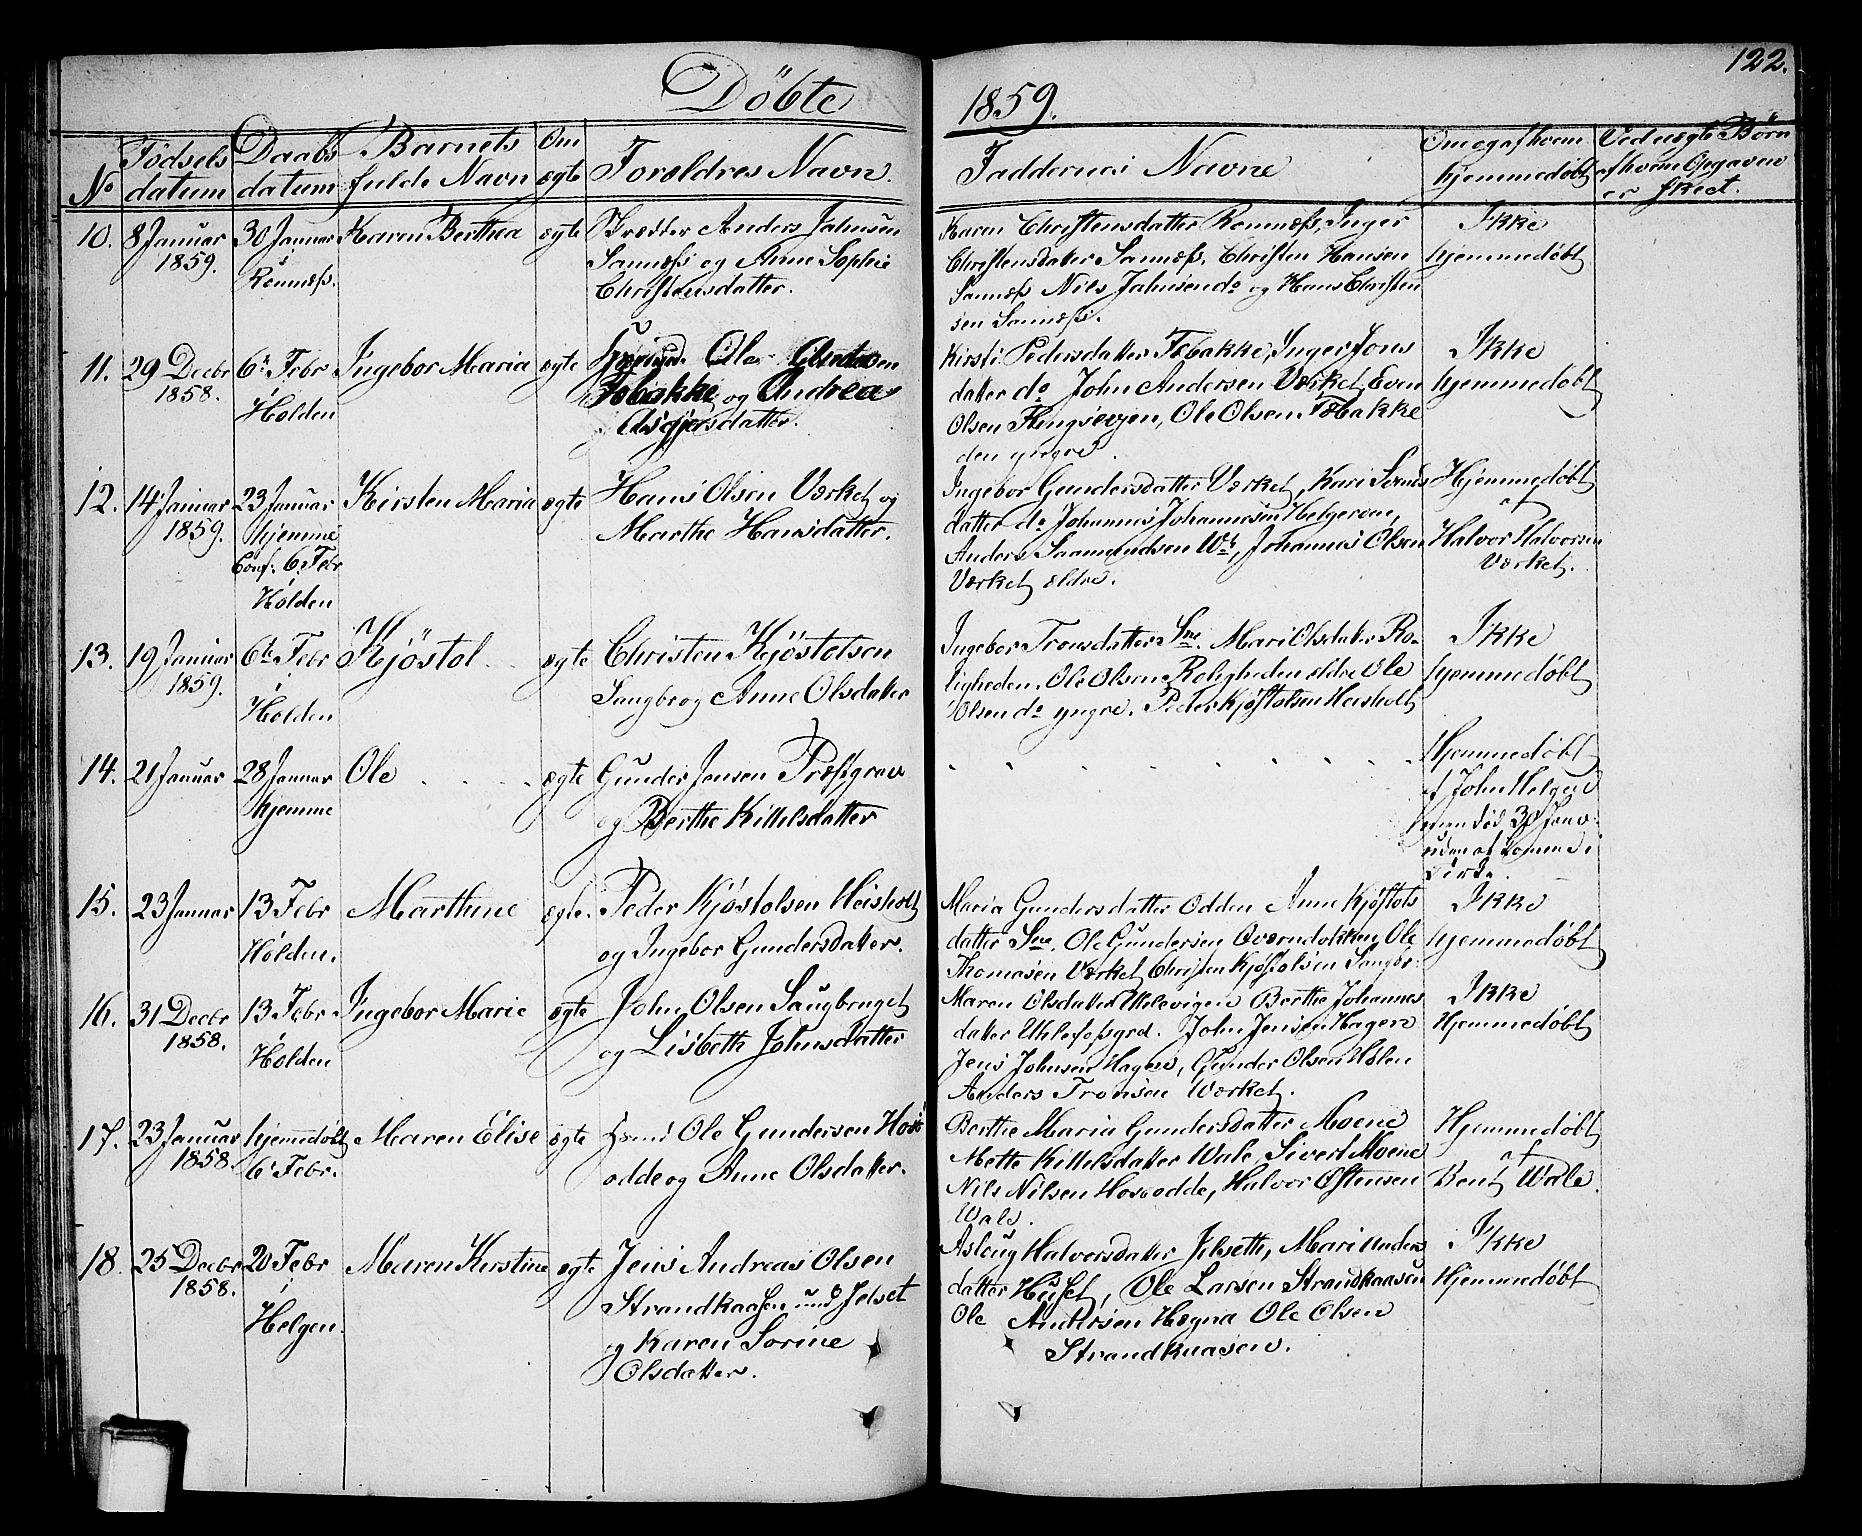 122.
Döbte 1859.
No
Födsels datum
Daabs datum
Barnets fulde Navn
Om ægte
Forældres Navn.
Faddernes Navne
Om og af hvem hjemmedøbt
Ved uægte Børn af hvem Opgaven er skeet.
10. 8 Januar 1859.
30 Januar Romnæss.
Karen Berthea
ægte
Anders Jahnsen
Sannæss og Anne Sophie
Christensdatter.
Karen Christensdatter Romnæss, Inger
Christensdatter Sannæss, Christen Hansen
Sannæss Nils Jahnsen do og Hans Christen
sen Sannæss.
Ikke
hjemmedøbt
11. 29 Decbr 1858.
6te Febr Holden
Ingebor Maria
ægte
Ole
Tobakke og Andrea
datter.
Kirsti Pedersdatter Tobakke, Inger Jons
datter do John Andersen Værket, Even
Olsen Ole Olsen Tobakke
den yngre.
Ikke
hjemmedøbt
12. 14 Januar 1859.
23 Januar hjemme
Conf: 6 Febr
Holden
Kirsten Maria
ægte
Hans Olsen Værket og
Marthe Hansdatter.
Ingebor Gundersdatter Værket, Kari
datter do Johannes Johannesen Helgeroen,
Anders Saamundsen Wk, Johannes Olsen
Værket ældre.
Hjemmedøbt
af
Halvor Halvorsen
Værket.
13. 19 Januar 1859.
6te Febr
i
Holden
Kjöstol
ægte
Christen Kjöstolsen
Saugbr og Anne Olsdatter
Ingebor Tronsdatter Sne. Mari Olsdatter Ro-
ligheden. Ole Olsen Roligheden ældre Ole
Olsen do yngre. Peder Kjöstolsen Heisholt
Ikke
hjemmedøbt
14. 21 Januar
28 Januar
hjemme
Ole
ægte
Gunder Jensen Præstgrav
og Berthe Kittelsdatter
Hjemmedøbt
af John Helgen
men død 30 Janr
uden at komme i
Kirke.
15. 23 Januar
13 Febr
Holden.
Marthine
ægte.
Peder Kjöstolsen Heisholt
og Ingebor Gundersdatter.
Maria Gundersdatter Odden Anne Kjöstols
datter Sne. Ole Gundersen Qværndokken, Ole
Thomasen Værket, Christen Kjöstolsen Saugbr:
Ikke
hjemmedøbt
16. 31 Decbr 1858.
13 Febr
i
Holden
Ingebor Marie
ægte
John Olsen Saugbruget
og Lisbeth Johnsdatter
Maren Olsdatter Uhlevigen Berthe Johannes
datter Uhlefossgrd. John Jensen Hagen
Jens Johnsen Hagen, Gunder Olsen Holen
Anders Tronsen Værket.
Ikke
Hjemmedøbt
17. 23 Januar 1858.
hjemmedøbt
6te Febr.
Maren Elise
ægte
Ole Gundersen Hov
odde og Anne Olsdatter.
Berthe Maria Gundersdatter Moene
Mette Kittelsdatter Wale, Sivert Moene
Nils Nilsen Hovodde, Halvor Ostensen
Wale.
Hjemmedøbt
af
Bent Wale.
18. 25 Decbr 1858.
20 Febr
i
Helgen.
Maren Kirstine
ægte
Jens Andreas Olsen
Strandkaasen und Jelset
og Karen Sorine
Olsdatter.
Aslaug Halvorsdatter Jelseth, Mari Anders
datter Huset, Ole Larsen Strandkaasen
Ole Andersen Hægna Ole Olsen
Strandkaasen.
Ikke
Hjemmedøbt